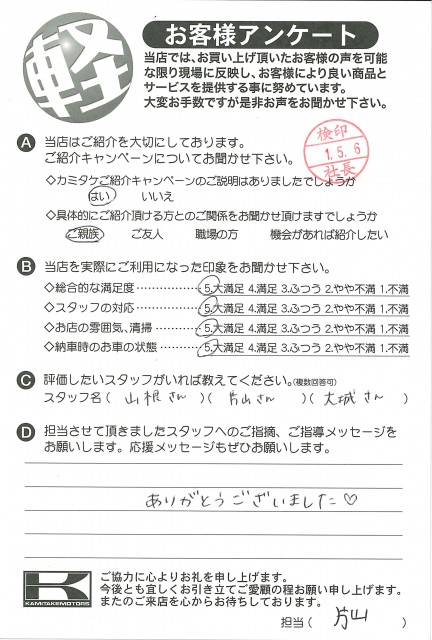 軽
お客様アンケート
当店では、お買い上げ頂いたお客様の声を可能
な限り現場に反映し、お客様により良い商品と
サービスを提供する事に努めています。
大変お手数ですが是非お声をお聞かせ下さい。
検印
1.5.6
社長
A 当店はご紹介を大切にしております。
ご紹介キャンペーンについてお聞かせ下さい。
◇カミタケご紹介キャンペーンのご説明はありましたでしょうか
はい いいえ
◇具体的にご紹介頂ける方とのご関係をお聞かせ頂けますでしょうか
ご親族 ご友人 職場の方 機会があれば紹介したい
B 当店を実際にご利用になった印象をお聞かせ下さい。
◇総合的な満足度………………5.大満足 4.満足 3.ふつう 2.やや不満 1.不満
◇スタッフの対応………………5.大満足 4.満足 3.ふつう 2.やや不満 1.不満
◇お店の雰囲気、清掃…………5.大満足 4.満足 3.ふつう 2.やや不満 1.不満
◇納車時のお車の状態…………5.大満足 4.満足 3.ふつう 2.やや不満 1.不満
C 評価したいスタッフがいれば教えてください。(複数回答可)
スタッフ名( 山根さん )( 片山さん )( 大城さん )
D 担当させて頂きましたスタッフへのご指摘、ご指導メッセージを
お願いします。応援メッセージもぜひお願いします。
ありがとうございました♡
K
KAMITAKEMOTORS
ご協力に心よりお礼を申し上げます。
今後とも宜しくお引き立てご愛顧の程お願い申し上げます。
またのご来店を心からお待ちしております。
担当( 片山 )